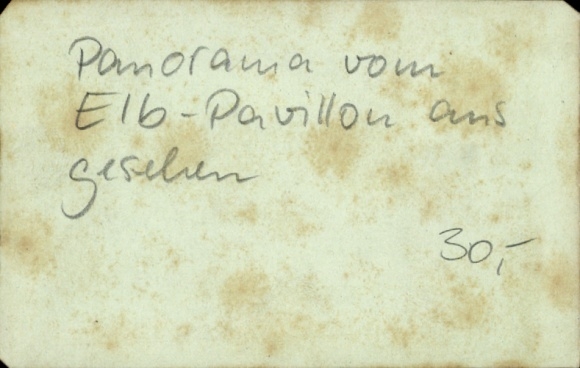 Panorama vom
Elb-Pavillon aus
gesehen
30,-